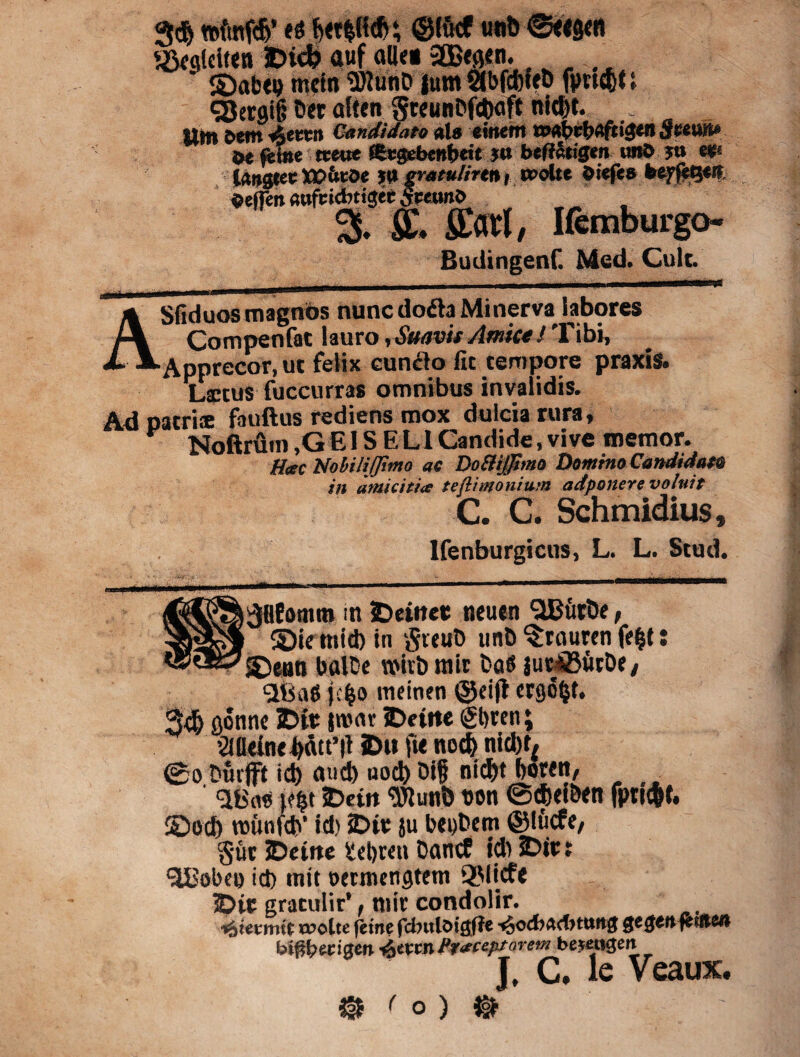 Ich wünsch' es hertzlich; Glück und Seegen
Begleiten Dich auf allen Wegen.
Dabey mein Mund zum Abschied spricht:
Vergiß der alten Freundschafft nicht.
Um dem Herrn Candidato als einem wahrhafftigen Freun-
de seine treue Ergebenheit zu bestätigen und zu er-
langter Würde zu gratuliren, wolte dieses beysetzen
dessen aufrichtiger Freund
J. E. Carl, Isemburgo-
Budingens. Med. Cult.
ASsiduos magnos nunc docta Minerva labores
Compensat lauro, Suavis Amice! Tibi,
Apprecor, ut felix cuncto sit tempore praxis.
Lætus succurras omnibus invalidis.
Ad patriæ faustus rediens mox dulcia rura,
Nostrûm, GEISELI Candide, vive memor.
Hæc Nobilissimo ac Doctissimo Domino Candidato
in amicitiæ testimonium adponere voluit
C. C. Schmidius,
Isenburgicus, L. L. Stud.
Willkomm in Deiner neuen Würde,
Die mich in Freud und Trauren setzt:
Denn balde wird mir das zur Bürde,
Was jetzo meinen Geist ergötzt.
Ich gönne Dir zwar Deine Ehren;
Alleine hätt'st Du sie noch nicht,
So dürfft ich auch noch diß nicht hören,
Was jetzt Dein Mund von Scheiden spricht.
Doch wünsch' ich Dir zu beydem Glücke,
Für Deine Lehren danck ich Dir:
Wobey ich mit vermengtem Blicke
Dir gratulir', mir condolir.
Hiermit wolte seine schuldigste Hochachtung gegen seinen
bißherigen Herrn Præceptorem bezeugen
J. C. le Veaux.
( o )